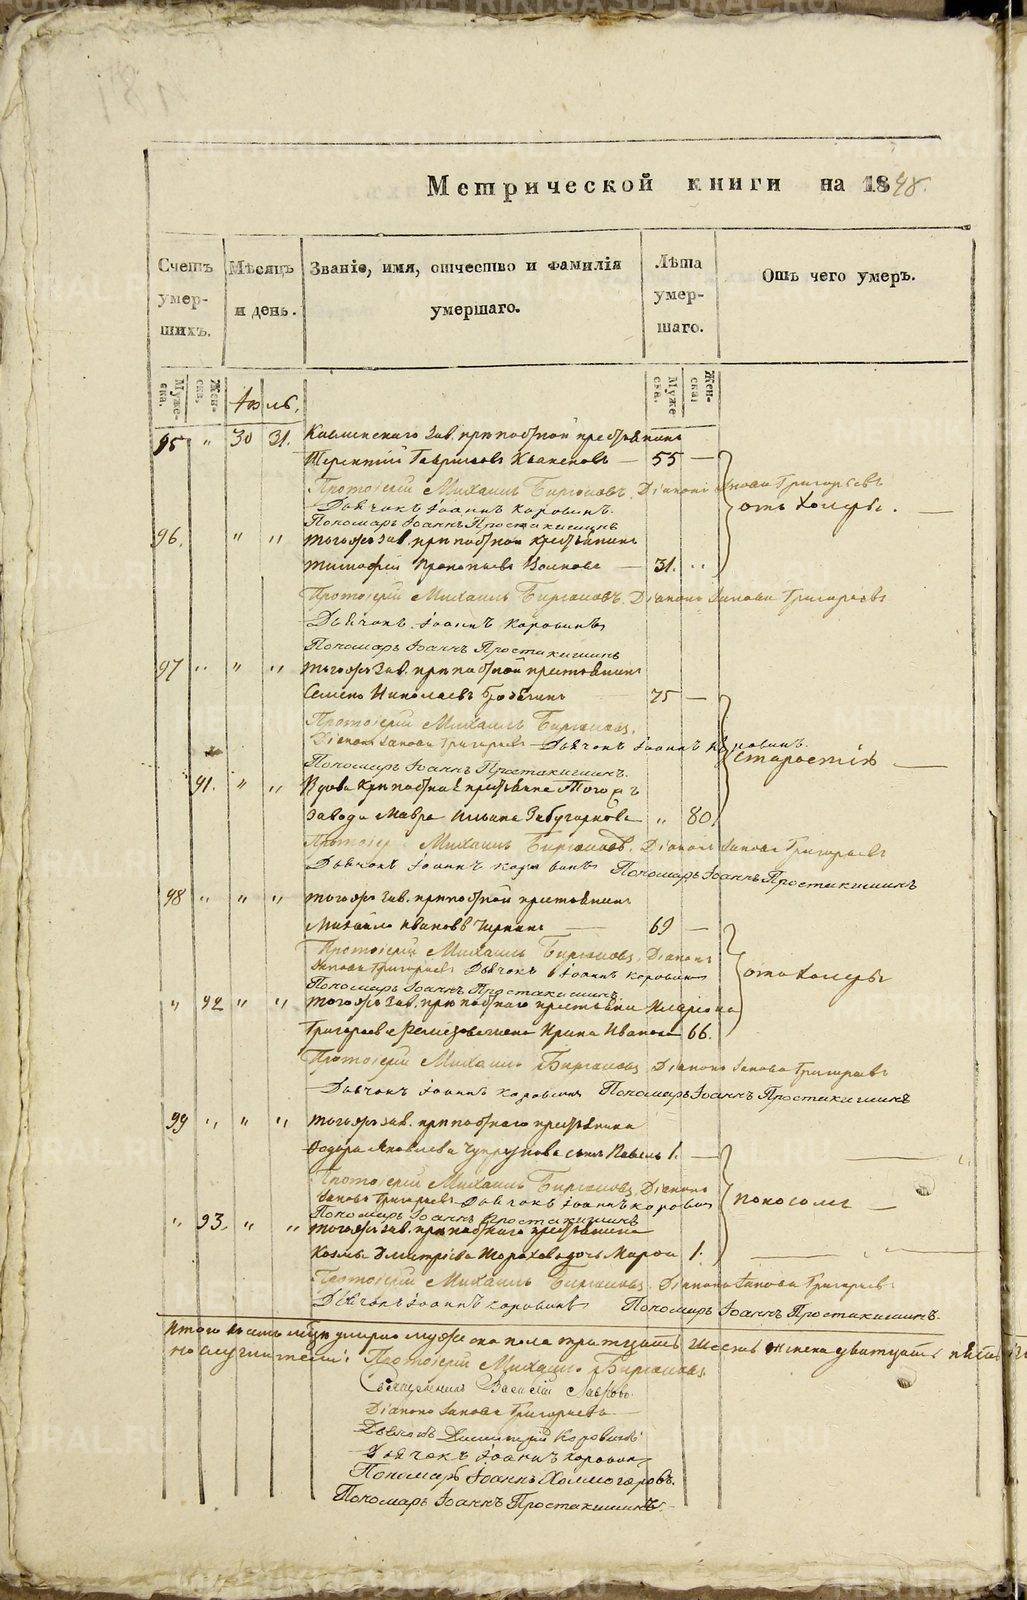 Метрической книги на 1848.
Счетъ умер- шихъ.
Мѣсяцъ и день.
Званіе, имя, отчество и фамилія умершаго.
Лѣта умер- шаго.
Отъ чего умеръ.
Муже- ска.
Жен- ска.
Муже ска.
Жен- ска:
Іюль.
95 " 30 31. Каслинскаго зав. приписной крестьянинъ
Терентій Гавриловъ — 55 —
Протоіерей Михаилъ Бирюковъ. Діаконъ Іаковъ Григорьевъ
отъ холеры. —
Дьячокъ Іоаннъ Коровинъ.
Пономарь Іоаннъ Простакишинъ
96. " " Тогожъ зав. приписной крестьянинъ
Тимофей Прокопьевъ Волковъ — 31. "
Протоіерей Михаилъ Бирюковъ. Діаконъ Іаковъ Григорьевъ
Дьячокъ Іоаннъ Коровинъ
Пономарь Іоаннъ Простакишинъ
97 " " " Тогожъ зав. приписной крестьянинъ
Семенъ Николаевъ 75 —
Протоіерей Михаилъ Бирюковъ.
Діаконъ Іаковъ Григорьевъ Дьячокъ Іоаннъ Коровинъ.
старостію —
Пономарь Іоаннъ Простакишинъ.
91. " " Вдова приписнаго крестьянина Тогожъ
завода Мавра Ильина " 80
Протоіерей Михаилъ Бирюковъ. Діаконъ Іаковъ Григорьевъ
Дьячокъ Іоаннъ Коровинъ Пономарь Іоаннъ Простакишинъ
98 " " " Тогожъ зав. приписной крестьянинъ
Михайло Ивановъ — 69 —
Протоіерей Михаилъ Бирюковъ. Діаконъ
Іаковъ Григорьевъ Дьячокъ Іоаннъ Коровинъ
отъ холеры
Пономарь Іоаннъ Простакишинъ
" 92 " " Тогожъ зав. приписнаго крестьянина Иларіона
Григорьева жена Ирина Иванова 66.
Протоіерей Михаилъ Бирюковъ Діаконъ Іаковъ Григорьевъ
Дьячокъ Іоаннъ Коровинъ Пономарь Іоаннъ Простакишинъ
99 " " " Тогожъ зав. приписнаго крестьянина
Федора Яковлева сынъ Павелъ 1. —
Протоіерей Михаилъ Бирюковъ, Діаконъ
Іаковъ Григорьевъ Дьячокъ Іоаннъ Коровинъ
поносомъ —
Пономарь Іоаннъ Простакишинъ
" 93. " " Тогожъ зав. приписнаго крестьянина
Козмы Дмитріева дочь Марѳа 1.
Протоіерей Михаилъ Бирюковъ Діаконъ Іаковъ Григорьевъ
Дьячокъ Іоаннъ Коровинъ Пономарь Іоаннъ Простакишинъ.
Итого умерло мужеска пола тритцать шесть женска дватцать
Протоіерей Михаилъ Бирюковъ,
Священникъ Василій
Діаконъ Іаковъ Григорьевъ
Дьячокъ Димитрій Коровинъ
Дьячокъ Іоаннъ Коровинъ
Пономарь Іоаннъ Холмогоровъ.
Пономарь Іоаннъ Простакишинъ